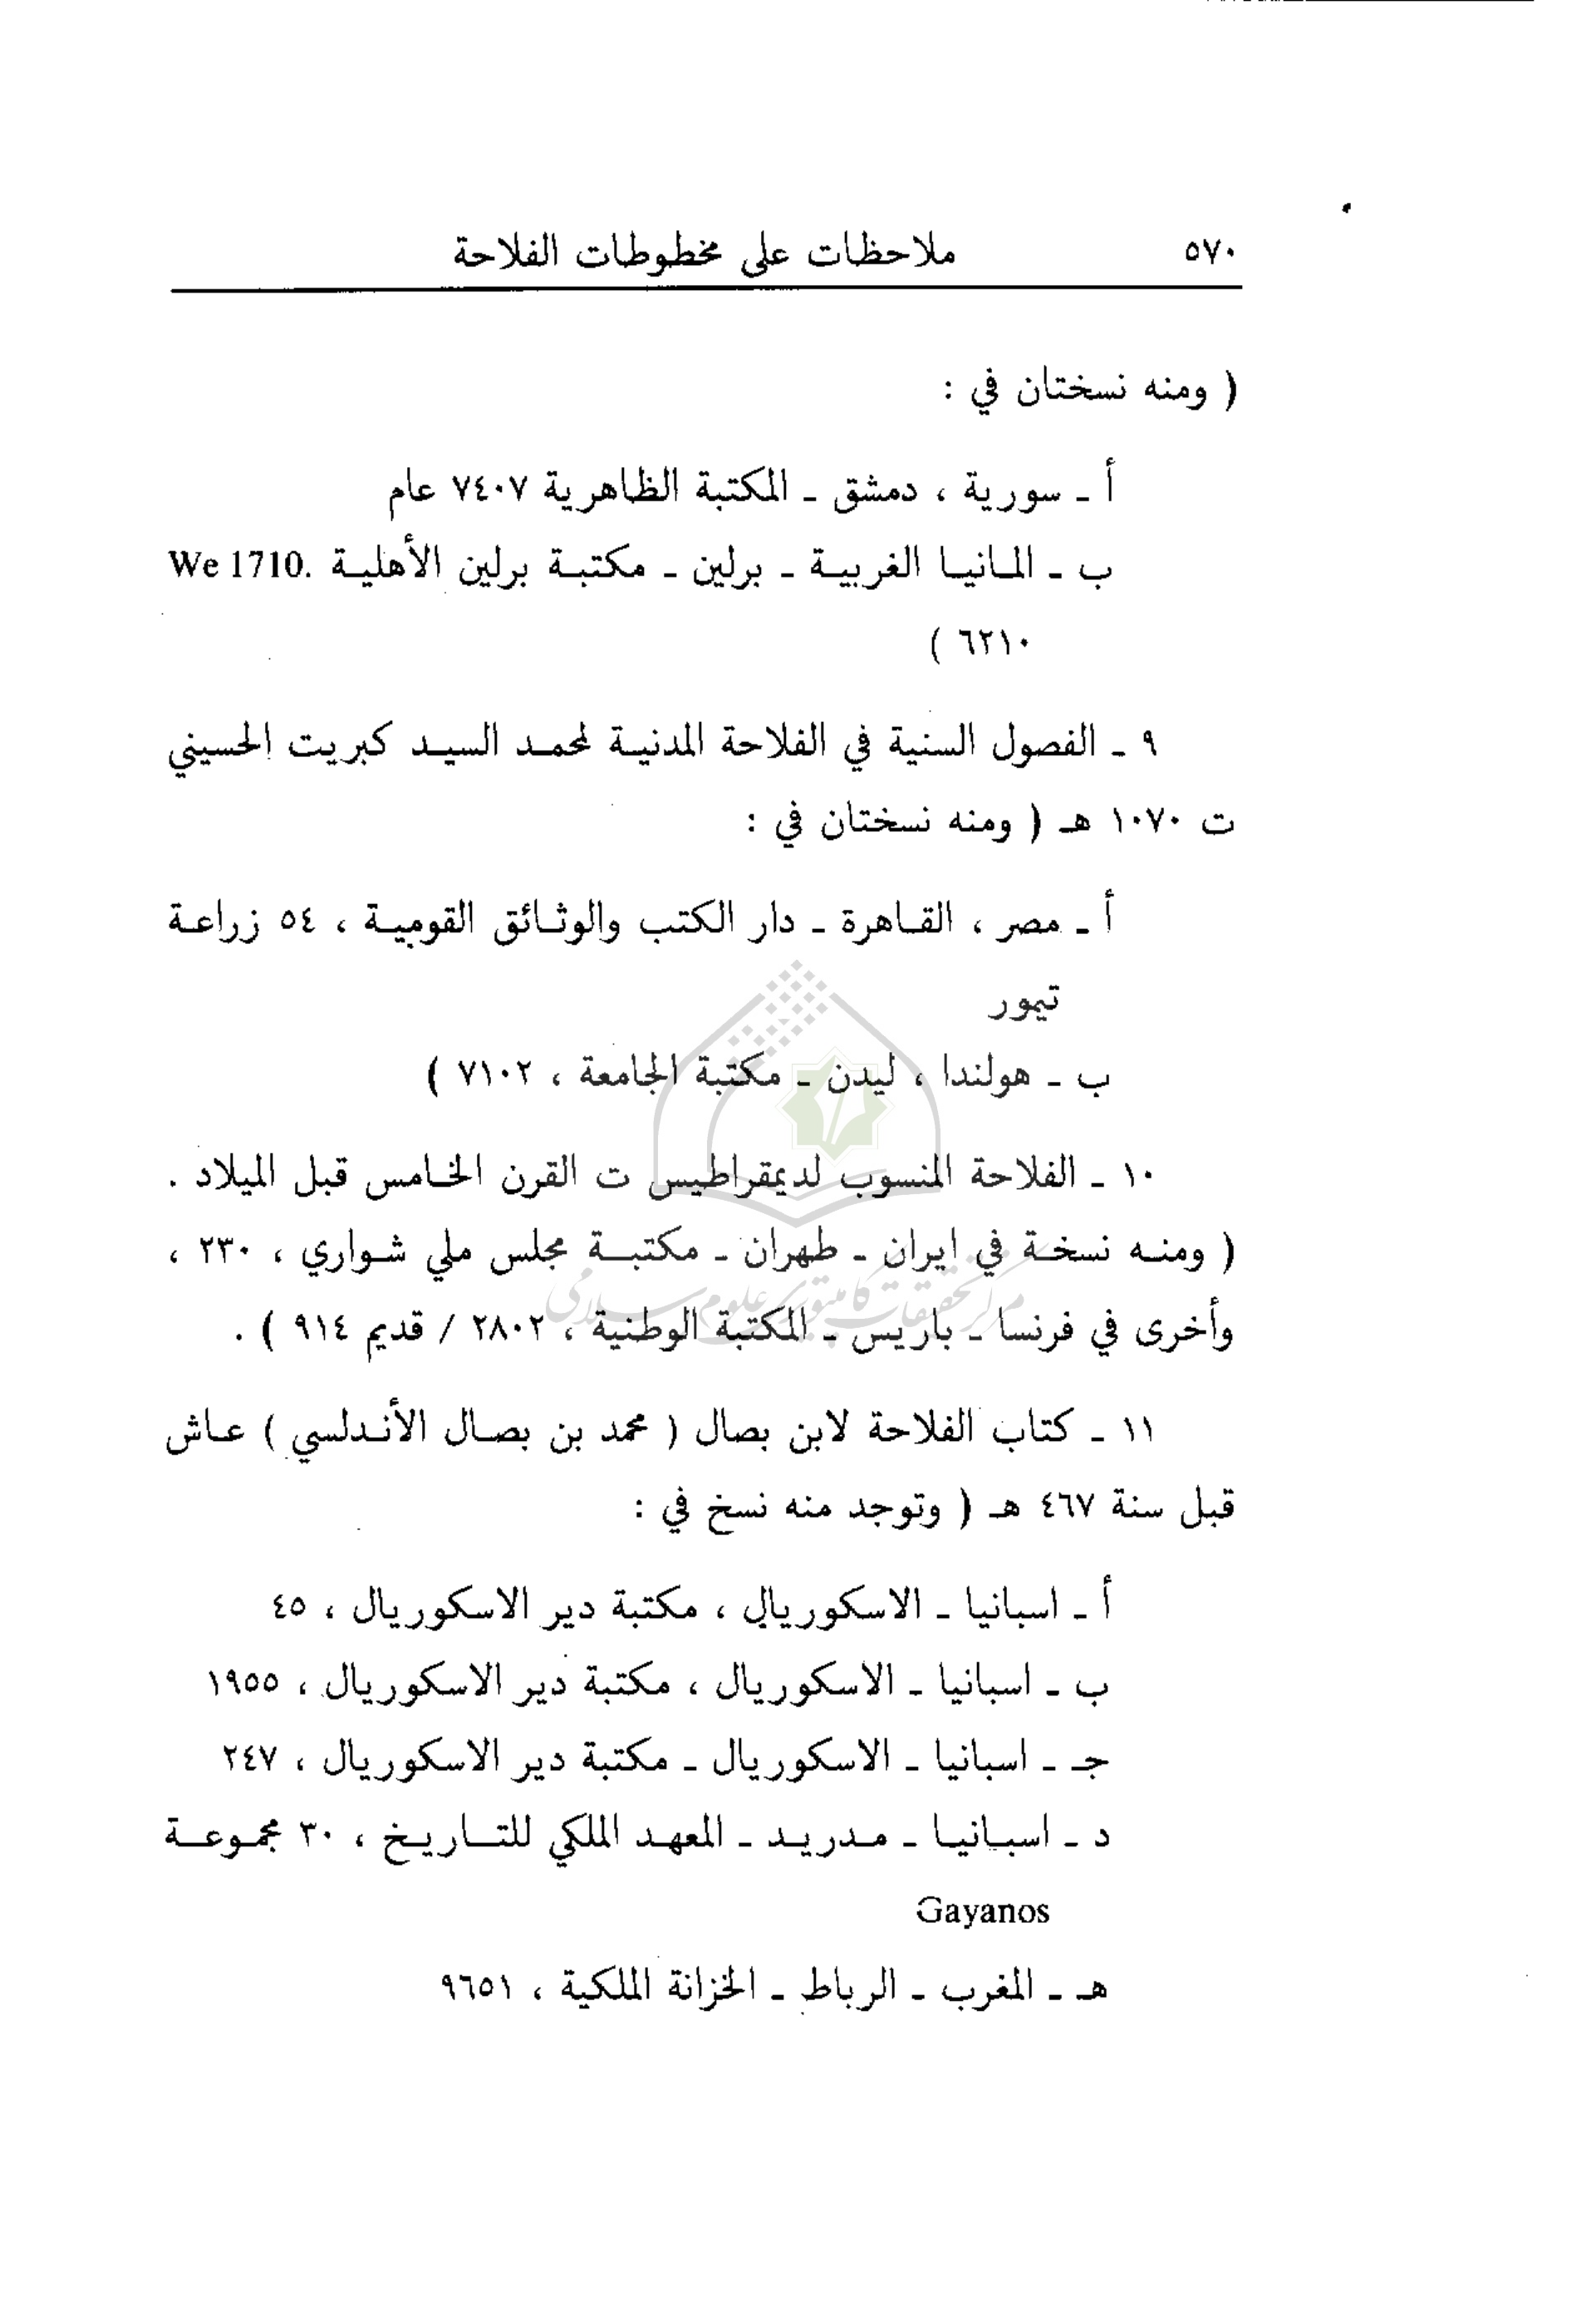 ٥٧٠ ملاحظات على مخطوطات الفلاحة
( ومنه نسختان في :
أ ـ سورية ، دمشق ـ المكتبة الظاهرية ٧٤٠٧ عام
ب ـ المانيا الغربية ـ برلين ـ مكتبة برلين الأهلية We 1710.
٦٢١٠ )
٩ ـ الفصول السنية في الفلاحة المدنية لمحمد السيد كبريت الحسيني
ت ١٠٧٠ هـ ( ومنه نسختان في :
أ ـ مصر ، القاهرة ـ دار الكتب والوثائق القومية ، ٥٤ زراعة
تيمور
ب ـ هولندا ، ليدن ـ مكتبة الجامعة ، ٧١٠٢ )
١٠ ـ الفلاحة المنسوب لديمقراطيس ت القرن الخامس قبل الميلاد .
( ومنه نسخة في ايران ـ طهران ـ مكتبة مجلس ملي شواري ، ٢٣٠ ،
مركز تحقيقات كامپيوترى علوم اسلامى
وأخرى في فرنسا ـ باريس ـ المكتبة الوطنية ، ٢٨٠٢ / قديم ٩١٤ ) .
١١ ـ كتاب الفلاحة لابن بصال ( محمد بن بصال الأندلسي ) عاش
قبل سنة ٤٦٧ هـ ( وتوجد منه نسخ في :
أ ـ اسبانيا ـ الاسكوريال ، مكتبة دير الاسكوريال ، ٤٥
ب ـ اسبانيا ـ الاسكوريال ، مكتبة دير الاسكوريال ، ١٩٥٥
جـ ـ اسبانيا ـ الاسكوريال ـ مكتبة دير الاسكوريال ، ٢٤٧
د ـ اسبانيا ـ مدريد ـ المعهد الملكي للتاريخ ، ٣٠ مجموعة
Gayanos
هـ ـ المغرب ـ الرباط ـ الخزانة الملكية ، ٩٦٥١